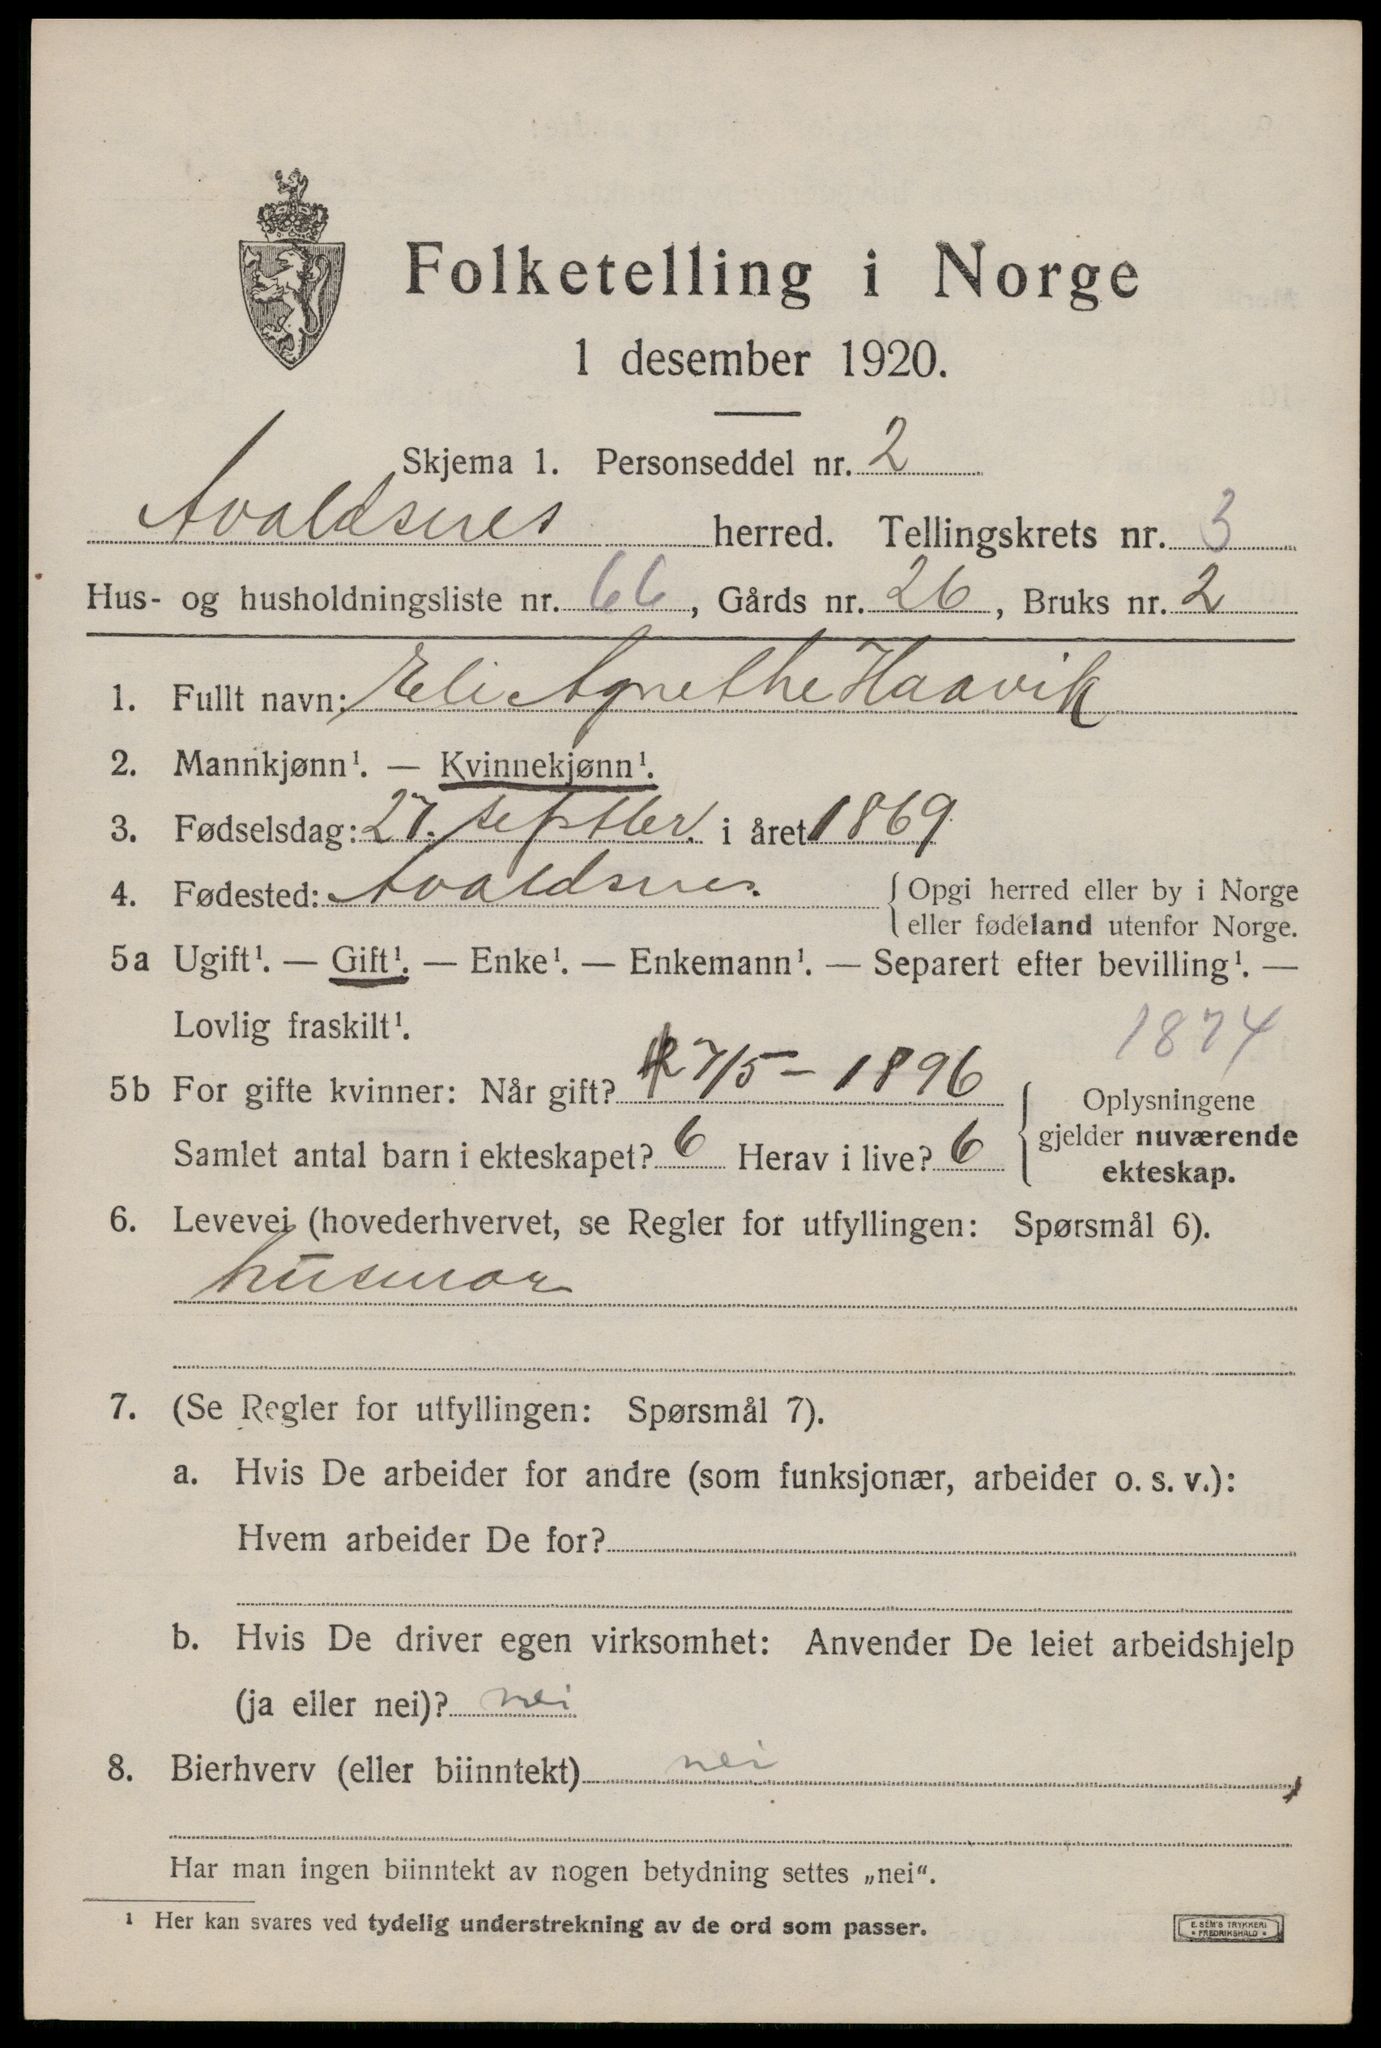 Folketelling i Norge
1 desember 1920.
Skjema 1. Personseddel nr. 2
Avaldsnes herred. Tellingskrets nr. 3
Hus- og husholdningsliste nr. 66, Gårds nr. 26, Bruks nr. 2
1. Fullt navn: Eli Agnethe Haavik
2. Mannkjønn¹. — Kvinnekjønn¹.
3. Fødselsdag: 27. septber. i året 1869
4. Fødested: Avaldsnes. { Opgi herred eller by i Norge
eller fødeland utenfor Norge.
5a Ugift¹. — Gift¹. — Enke¹. — Enkemann¹. — Separert efter bevilling¹. —
Lovlig fraskilt¹.
1874
5b For gifte kvinner: Når gift? 27/5 - 1896
Samlet antal barn i ekteskapet? 6 Herav i live? 6
{ Oplysningene
gjelder nuværende
ekteskap.
6. Levevei (hovederhvervet, se Regler for utfyllingen: Spørsmål 6).
husmor
7. (Se Regler for utfyllingen: Spørsmål 7).
a. Hvis De arbeider for andre (som funksjonær, arbeider o. s. v.):
Hvem arbeider De for?
b. Hvis De driver egen virksomhet: Anvender De leiet arbeidshjelp
(ja eller nei)? nei
8. Bierhverv (eller biinntekt) nei
Har man ingen biinntekt av nogen betydning settes „nei“.
¹ Her kan svares ved tydelig understrekning av de ord som passer.
E. SEM'S TRYKKERI
* FREDRIKSHALD *